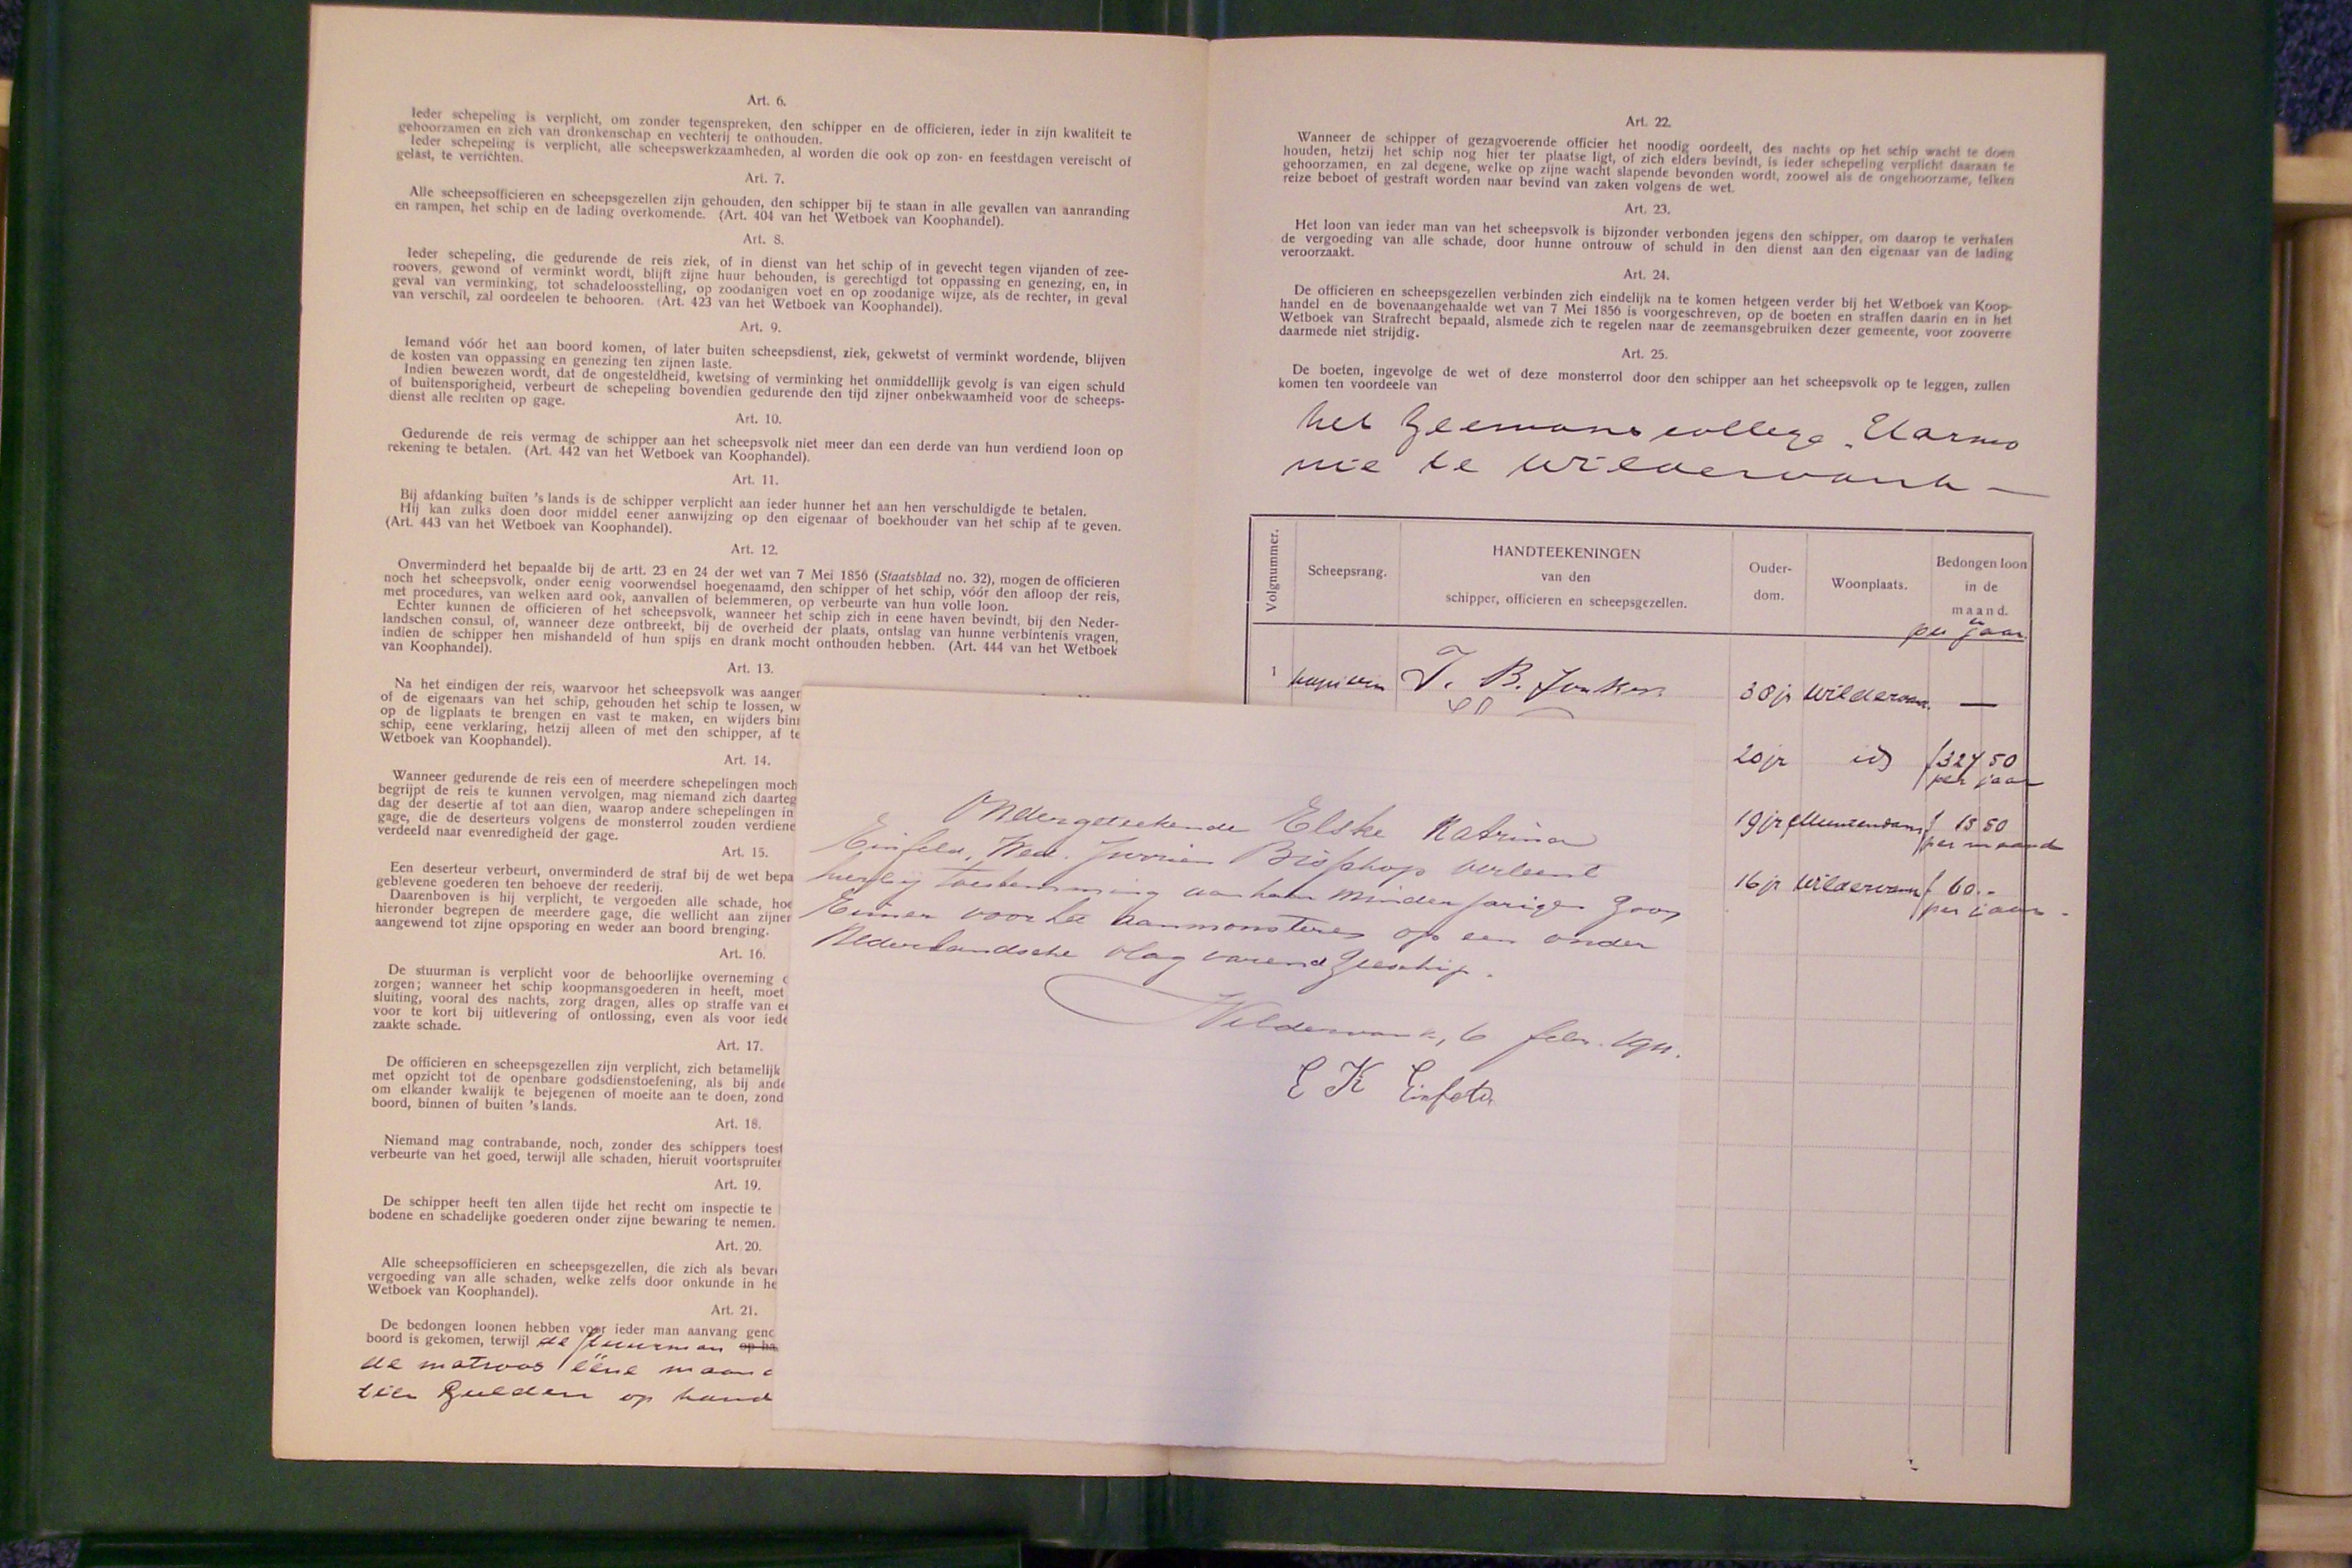 Art. 6.
Ieder schepeling is verplicht, om zonder tegenspreken, den schipper en de officieren, ieder in zijn kwaliteit te
gehoorzamen en zich van dronkenschap en vechterij te onthouden.
Ieder schepeling is verplicht, alle scheepswerkzaamheden, al worden die ook op zon- en feestdagen vereischt of
gelast, te verrichten.
Art. 7.
Alle scheepsofficieren en scheepsgezellen zijn gehouden, den schipper bij te staan in alle gevallen van aanranding
en rampen, het schip en de lading overkomende. (Art. 404 van het Wetboek van Koophandel).
Art. 8.
Ieder schepeling, die gedurende de reis ziek, of in dienst van het schip of in gevecht tegen vijanden of zee-
roovers, gewond of verminkt wordt, blijft zijne huur behouden, is gerechtigd tot oppassing en genezing, en, in
geval van verminking, tot schadeloosstelling, op zoodanigen voet en op zoodanige wijze, als de rechter, in geval
van verschil, zal oordeelen te behooren. (Art. 423 van het Wetboek van Koophandel).
Art. 9.
Iemand vóór het aan boord komen, of later buiten scheepsdienst, ziek, gekwetst of verminkt wordende, blijven
de kosten van oppassing en genezing ten zijnen laste.
Indien bewezen wordt, dat de ongesteldheid, kwetsing of verminking het onmiddellijk gevolg is van eigen schuld
of buitensporigheid, verbeurt de schepeling bovendien gedurende den tijd zijner onbekwaamheid voor de scheeps-
dienst alle rechten op gage.
Art. 10.
Gedurende de reis vermag de schipper aan het scheepsvolk niet meer dan een derde van hun verdiend loon op
rekening te betalen. (Art. 442 van het Wetboek van Koophandel).
Art. 11.
Bij afdanking buiten 's lands is de schipper verplicht aan ieder hunner het aan hen verschuldigde te betalen.
Hij kan zulks doen door middel eener aanwijzing op den eigenaar of boekhouder van het schip af te geven.
(Art. 443 van het Wetboek van Koophandel).
Art. 12.
Onverminderd het bepaalde bij de artt. 23 en 24 der wet van 7 Mei 1856 (Staatsblad no. 32), mogen de officieren
noch het scheepsvolk, onder eenig voorwendsel hoegenaamd, den schipper of het schip, vóór den afloop der reis,
met procedures, van welken aard ook, aanvallen of belemmeren, op verbeurte van hun volle loon.
Echter kunnen de officieren of het scheepsvolk, wanneer het schip zich in eene haven bevindt, bij den Neder-
landschen consul, of, wanneer deze ontbreekt, bij de overheid der plaats, ontslag van hunne verbintenis vragen,
indien de schipper hen mishandeld of hun spijs en drank mocht onthouden hebben. (Art. 444 van het Wetboek
van Koophandel).
Art. 13.
Na het eindigen der reis, waarvoor het scheepsvolk was aanger
of de eigenaars van het schip, gehouden het schip te lossen, w
op de ligplaats te brengen en vast te maken, en wijders binn
schip, eene verklaring, hetzij alleen of met den schipper, af te
Wetboek van Koophandel).
Art. 14.
Wanneer gedurende de reis een of meerdere schepelingen moch
begrijpt de reis te kunnen vervolgen, mag niemand zich daarteg
dag der desertie af tot aan dien, waarop andere schepelingen in
gage, die de deserteurs volgens de monsterrol zouden verdiene
verdeeld naar evenredigheid der gage.
Art. 15.
Een deserteur verbeurt, onverminderd de straf bij de wet bepa
geblevene goederen ten behoeve der reederij.
Daarenboven is hij verplicht, te vergoeden alle schade, hoe
hieronder begrepen de meerdere gage, die wellicht aan zijner
aangewend tot zijne opsporing en weder aan boord brenging.
Art. 16.
De stuurman is verplicht voor de behoorlijke overneming
zorgen; wanneer het schip koopmansgoederen in heeft, moet
sluiting, vooral des nachts, zorg dragen, alles op straffe van e
voor te kort bij uitlevering of ontlossing, even als voor iede
zaakte schade.
Art. 17.
De officieren en scheepsgezellen zijn verplicht, zich betamelijk
met opzicht tot de openbare godsdienstoefening, als bij ande
om elkander kwalijk te bejegenen of moeite aan te doen, zond
boord, binnen of buiten 's lands.
Art. 18.
Niemand mag contrabande, noch, zonder des schippers toest
verbeurte van het goed, terwijl alle schaden, hieruit voortspruiten
Art. 19.
De schipper heeft ten allen tijde het recht om inspectie te
bodene en schadelijke goederen onder zijne bewaring te nemen.
Art. 20.
Alle scheepsofficieren en scheepsgezellen, die zich als bevar
vergoeding van alle schaden, welke zelfs door onkunde in he
Wetboek van Koophandel).
Art. 21.
De bedongen loonen hebben voor ieder man aanvang geno
boord is gekomen, terwijl de stuurman op ha
de matroos ééne maand
tien Gulden op hand
Art. 22.
Wanneer de schipper of gezagvoerende officier het noodig oordeelt, des nachts op het schip wacht te doen
houden, hetzij het schip nog hier ter plaatse ligt, of zich elders bevindt, is ieder schepeling verplicht daaraan te
gehoorzamen, en zal degene, welke op zijne wacht slapende bevonden wordt, zoowel als de ongehoorzame, telken
reize beboet of gestraft worden naar bevind van zaken volgens de wet.
Art. 23.
Het loon van ieder man van het scheepsvolk is bijzonder verbonden jegens den schipper, om daarop te verhalen
de vergoeding van alle schade, door hunne ontrouw of schuld in den dienst aan den eigenaar van de lading
veroorzaakt.
Art. 24.
De officieren en scheepsgezellen verbinden zich eindelijk na te komen hetgeen verder bij het Wetboek van Koop-
handel en de bovenaangehaalde wet van 7 Mei 1856 is voorgeschreven, op de boeten en straffen daarin en in het
Wetboek van Strafrecht bepaald, alsmede zich te regelen naar de zeemansgebruiken dezer gemeente, voor zooverre
daarmede niet strijdig.
Art. 25.
De boeten, ingevolge de wet of deze monsterrol door den schipper aan het scheepsvolk op te leggen, zullen
komen ten voordeele van
het Zeemans college „Harmo
nie te Wildervank —
Volgnummer. Scheepsrang. HANDTEEKENINGEN van den schipper, officieren en scheepsgezellen. Ouder- dom. Woonplaats. Bedongen loon in de maand. en per jaar
1 kapitein T. B. Jonker 38 jr Wildervank —
20 jr id) f 327 50 per jaar
19 jr Muntendam f 15 50 per maand
16 jr Wildervank f 60.- per jaar.
Ondergeteekende Elske Katrina
Einfeld, Wed. Jurrien Bisschop verleent
hierbij toestemming aan haar minderjarigen zoon
Eimer voor het aanmonsteren op een onder
Nederlandsche vlag varend zeeschip.
Wildervank, 6 febr. 1911.
E K Einfeld.